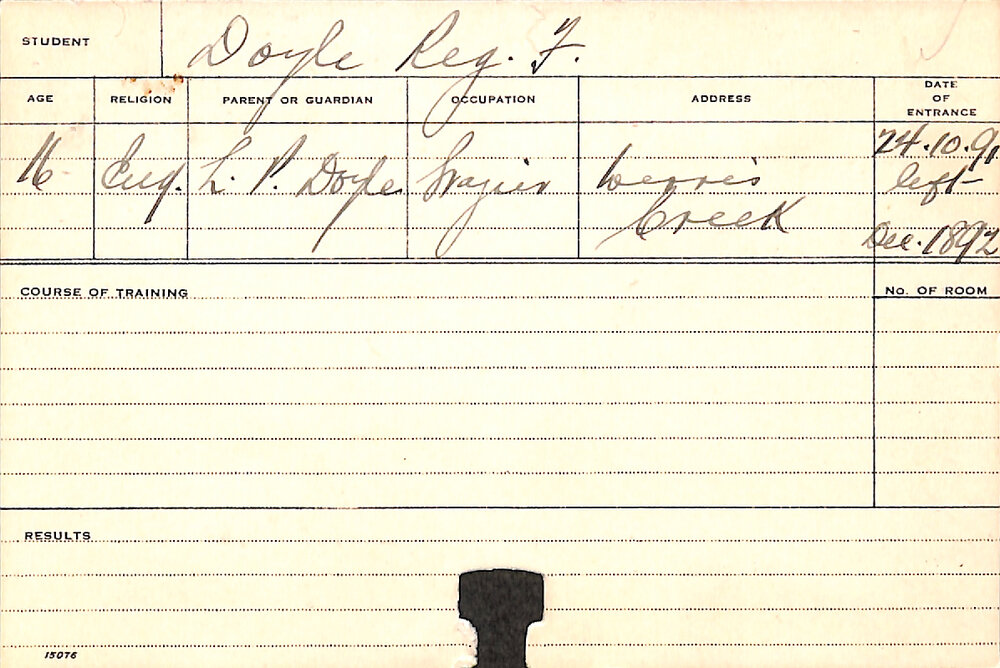 STUDENT Doyle Reg. F.
AGE RELIGION PARENT OR GUARDIAN OCCUPATION ADDRESS DATE OF ENTRANCE
16 Eng. L. P. Doyle Grazier Werris Creek 24.10.91
left
Dec. 1892
COURSE OF TRAINING No. OF ROOM
RESULTS
15076